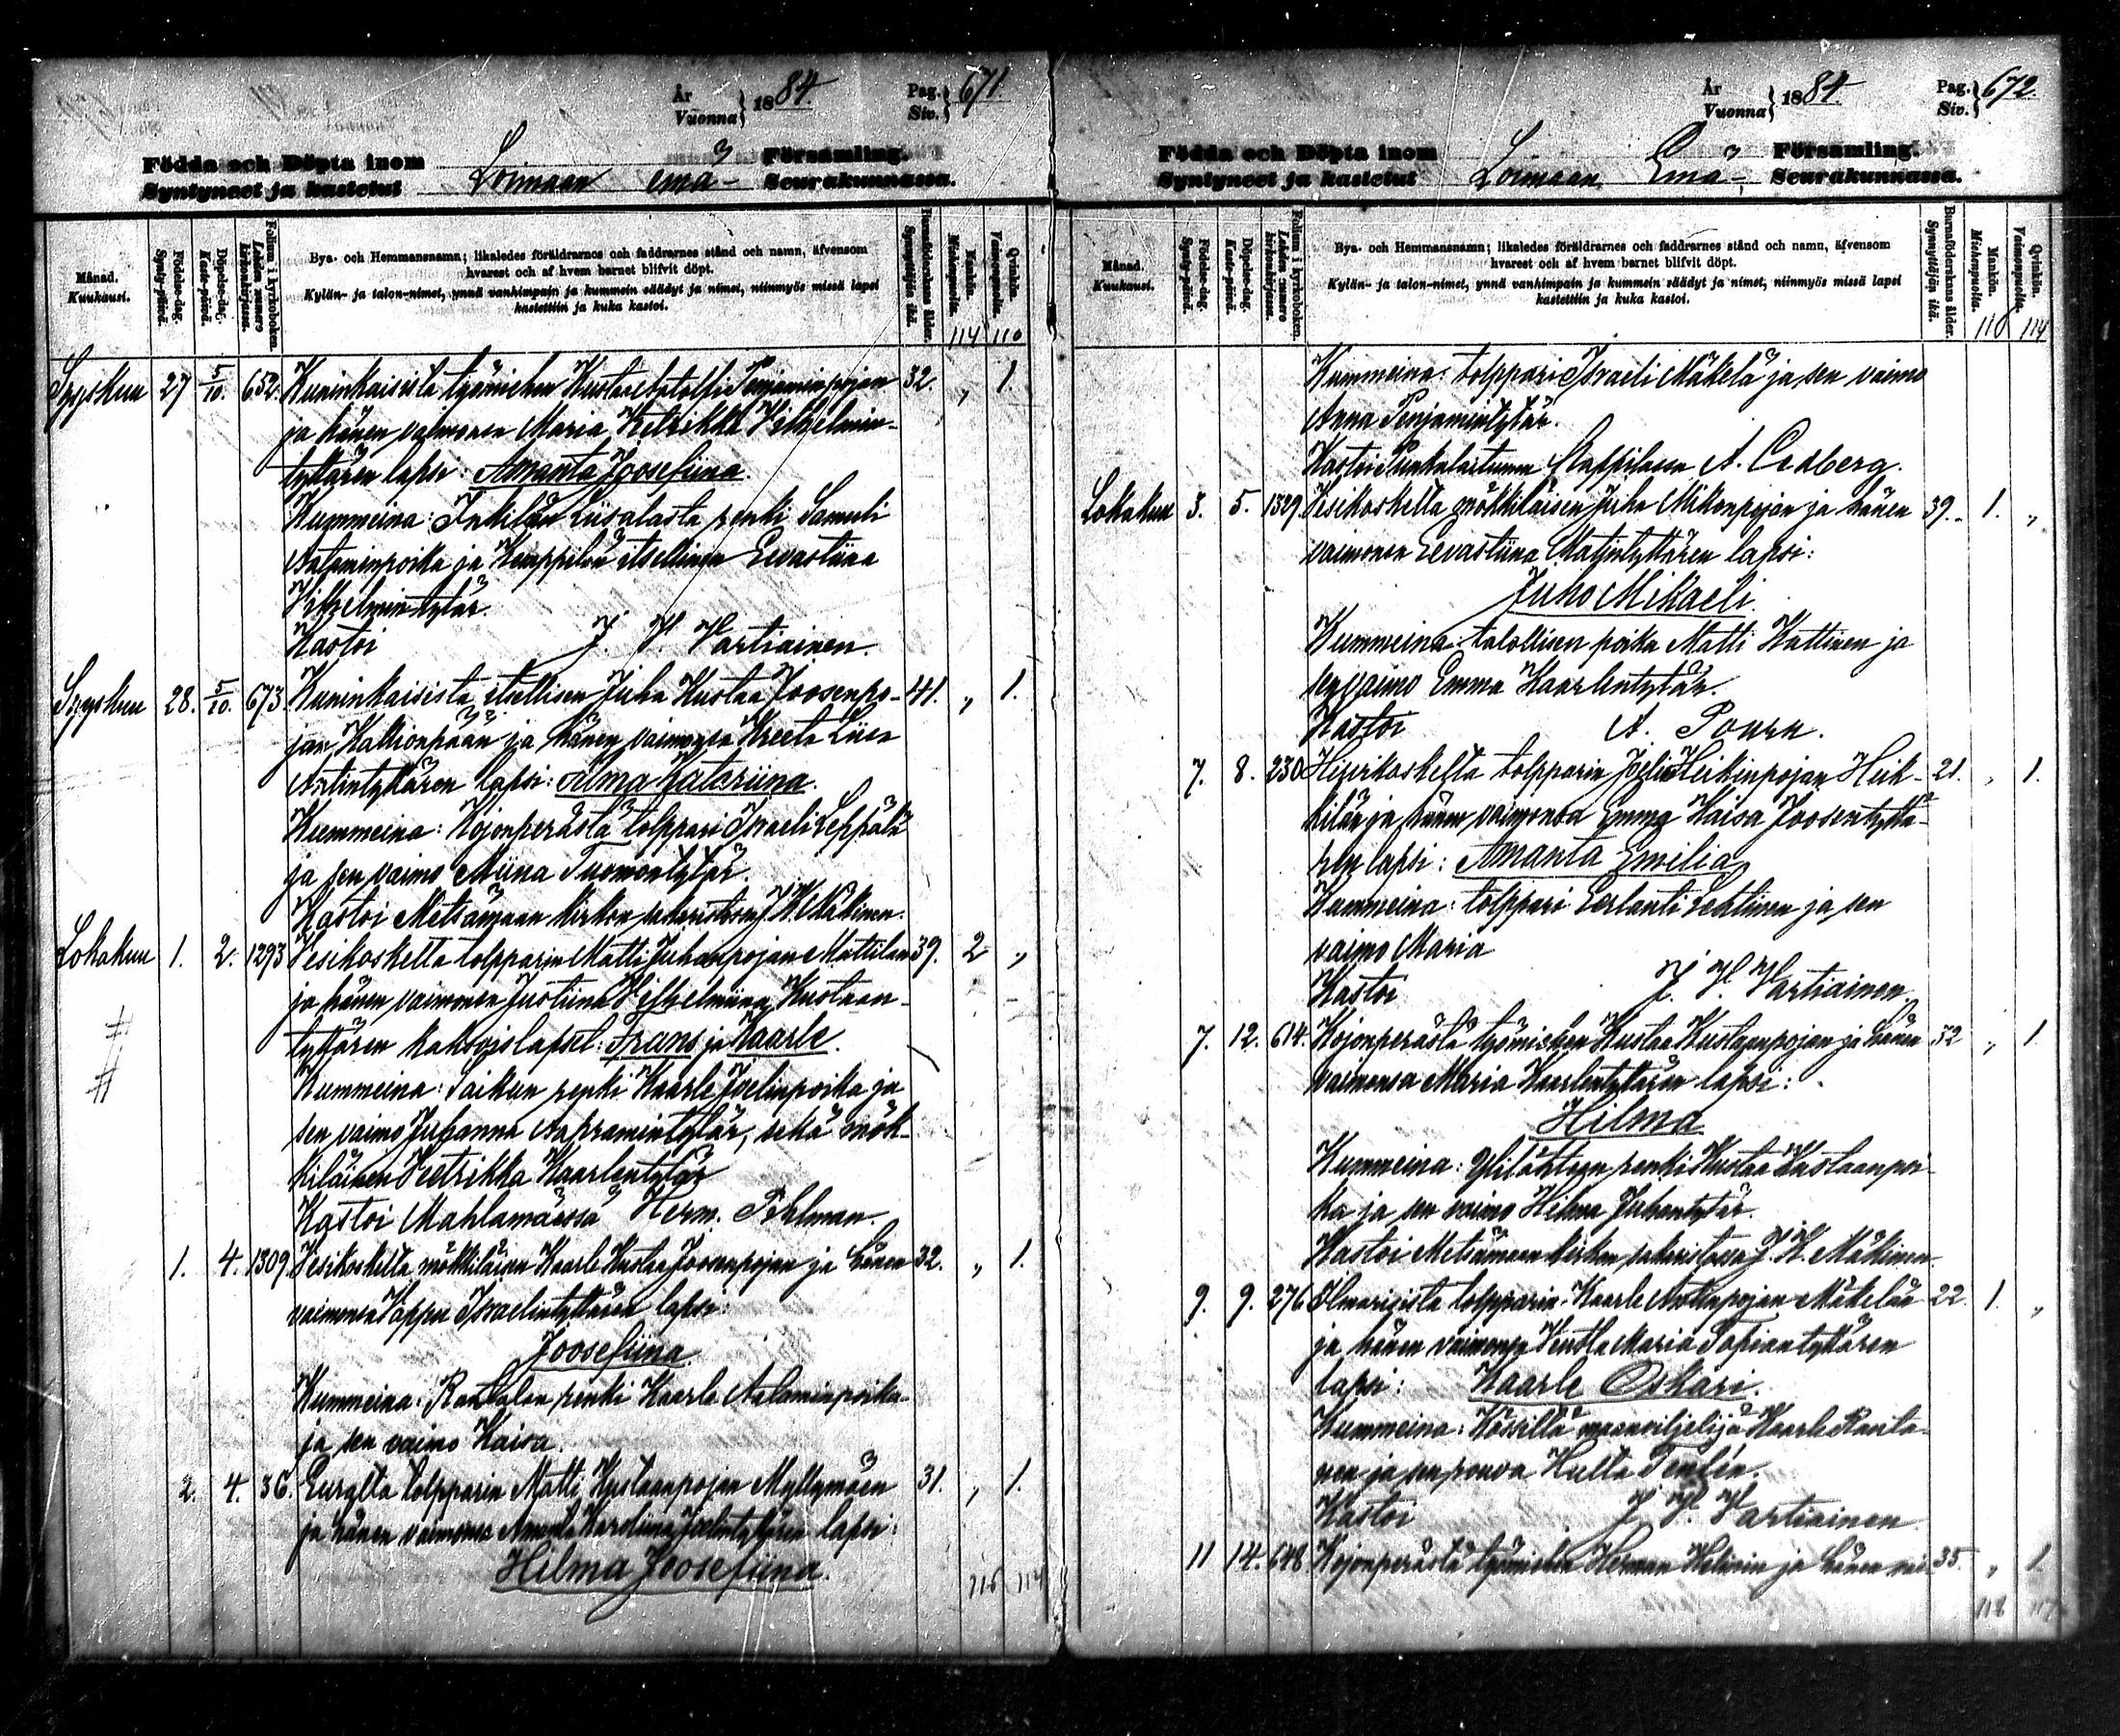 År
Vuonna } 1884.
Pag.
Siv. } 671.
Födda och Döpta inom
Syntyneet ja kastetut
Loimaan emä-
Församling.
Seurakunnassa.
Månad.
Kuukausi.
Födelse-dag.
Synty-päivä.
Döpelse-dag.
Kaste-päivä.
Folium i kyrkoboken.
Lehden numero kirkonkirjassa.
Bya- och Hemmansnamn; likaledes föräldrarnes och faddrarnes stånd och namn, äfvensom
hvarest och af hvem barnet blifvit döpt.
Kylän- ja talon-nimet, ynnä vanhimpain ja kummein säädyt ja nimet, niinmyös missä lapsi
kastettiin ja kuka kastoi.
Barnaföderskans ålder.
Synnyttäjän ikä.
Mankön.
Miehenpuolta.
Qvinkön.
Vaimonpuolta.
114 110
Syyskuu 27 5/10. 652. Kuninkaisista työmiehen Kustaa Aatolfin Penjaminpojan 32. „ 1.
ja hänen vaimonsa Maria Fretrikka Vilhelmin-
tyttären lapsi: Amanta Joosefiina.
Kummeina: Liisalasta renki Samuli
Aataminpoika ja itsellinen Eevastiina
Vilhelmintytär.
Kastoi J. V. Vartiainen.
Syyskuu 28. 5/10. 673. Kuninkaisista itsellisen Juha Kustaa Joosenpo- 41. „ 1.
jan Kallionpään ja hänen vaimonsa Kreeta Liisa
Antintyttären lapsi: Alma Katariina.
Kummeina: Kojonperästä tolppari Israeli Leppälä
ja sen vaimo Miina Tuomontytär.
Kastoi Metsämaan kirkon sakaristossa J. K. Mäkinen.
Lokakuu 1. 2. 1293 Vesikoskelta tolpparin Matti Juhanpojan Mattilan 39. 2 „
ja hänen vaimonsa Justiina Vilhelmiina Kustaan-
tyttären kaksoislapset: Frans ja Kaarle.
Kummeina: renki Kaarle Joelinpoika ja
sen vaimo Juhanna Aapramintytär, sekä mök-
kiläinen Fretrikka Kaarlentytär
Kastoi Mahlamäessä Herm. Pihlman.
1. 4. 1309. Vesikoskelta mökkiläisen Kaarle Kustaa Joosenpojan ja hänen 32. „ 1.
vaimonsa Vappu Israelintyttären lapsi:
Joosefiina.
Kummeina: Rantalan renki Kaarle Aataminpoika
ja sen vaimo Kaisa.
2. 4. 36. Euralta tolpparin Matti Kustaanpojan Myllymäen 31. „ 1.
ja hänen vaimonsa Amanta Karoliina Joelintyttären lapsi:
Hilma Joosefiina.
116 114
År
Vuonna } 1884
Pag.
Siv. } 672.
Födda och Döpta inom
Syntyneet ja kastetut
Loimaan Emä-
Församling.
Seurakunnassa.
Månad.
Kuukausi.
Födelse-dag.
Synty-päivä.
Döpelse-dag.
Kaste-päivä.
Folium i kyrkoboken.
Lehden numero kirkonkirjassa.
Bya- och Hemmansnamn; likaledes föräldrarnes och faddrarnes stånd och namn, äfvensom
hvarest och af hvem barnet blifvit döpt.
Kylän- ja talon-nimet, ynnä vanhimpain ja kummein säädyt ja nimet, niinmyös missä lapsi
kastettiin ja kuka kastoi.
Barnaföderskans ålder.
Synnyttäjän ikä.
Mankön.
Miehenpuolta.
Qvinkön.
Vaimonpuolta.
116 114
Kummeina: tolppari Israeli Mäkelä ja sen vaimo
Anna Penjamintytär.
Kastoi Punkalaitumen Pappilassa A. Cedberg.
Lokakuu 3. 5. 1329. Vesikoskelta mökkiläisen Juha Mikonpojan ja hänen 39. 1. „
vaimonsa Eevastiina Matintyttären lapsi:
Juho Mikaeli.
Kummeina: talollisen poika Matti Kattinen ja
sen vaimo Emma Kaarlentytär.
Kastoi A. Ponsa.
7. 8. 230. Hijrikoskelta tolpparin Joeli Heikinpojan Heik- 21. „ 1.
kilän ja hänen vaimonsa Emma Kaisa Joosentyttä-
ren lapsi: Amanta Emilia
Kummeina: tolppari Eerlanti Lehtinen ja sen
vaimo Maria
Kastoi J. V. Vartiainen.
7. 12. 614. Kojonperästä työmiehen Kustaa Kustaanpojan ja hänen 32 „ 1
vaimonsa Maria Kaarlentyttären lapsi:
Hilma
Kummeina: renki Kustaa Kustaanpoi-
ka ja sen vaimo Hilma Juhantytär.
Kastoi Metsämaan kirkon sakaristossa J. K. Mäkinen.
9. 9. 276. Ilmarisista tolpparin Kaarle Antinpojan Mäkelän 22. 1. „
ja hänen vaimonsa Maria Tapiantyttären
lapsi: Kaarle Oskari.
Kummeina: maanviljelijä Kaarle Ranta-
nen ja sen rouva Hulta
Kastoi J. V. Vartiainen
11 14. 648 Kojonperästä työmiehen Herman Helinin ja hänen vai- 35. „ 1
118 117